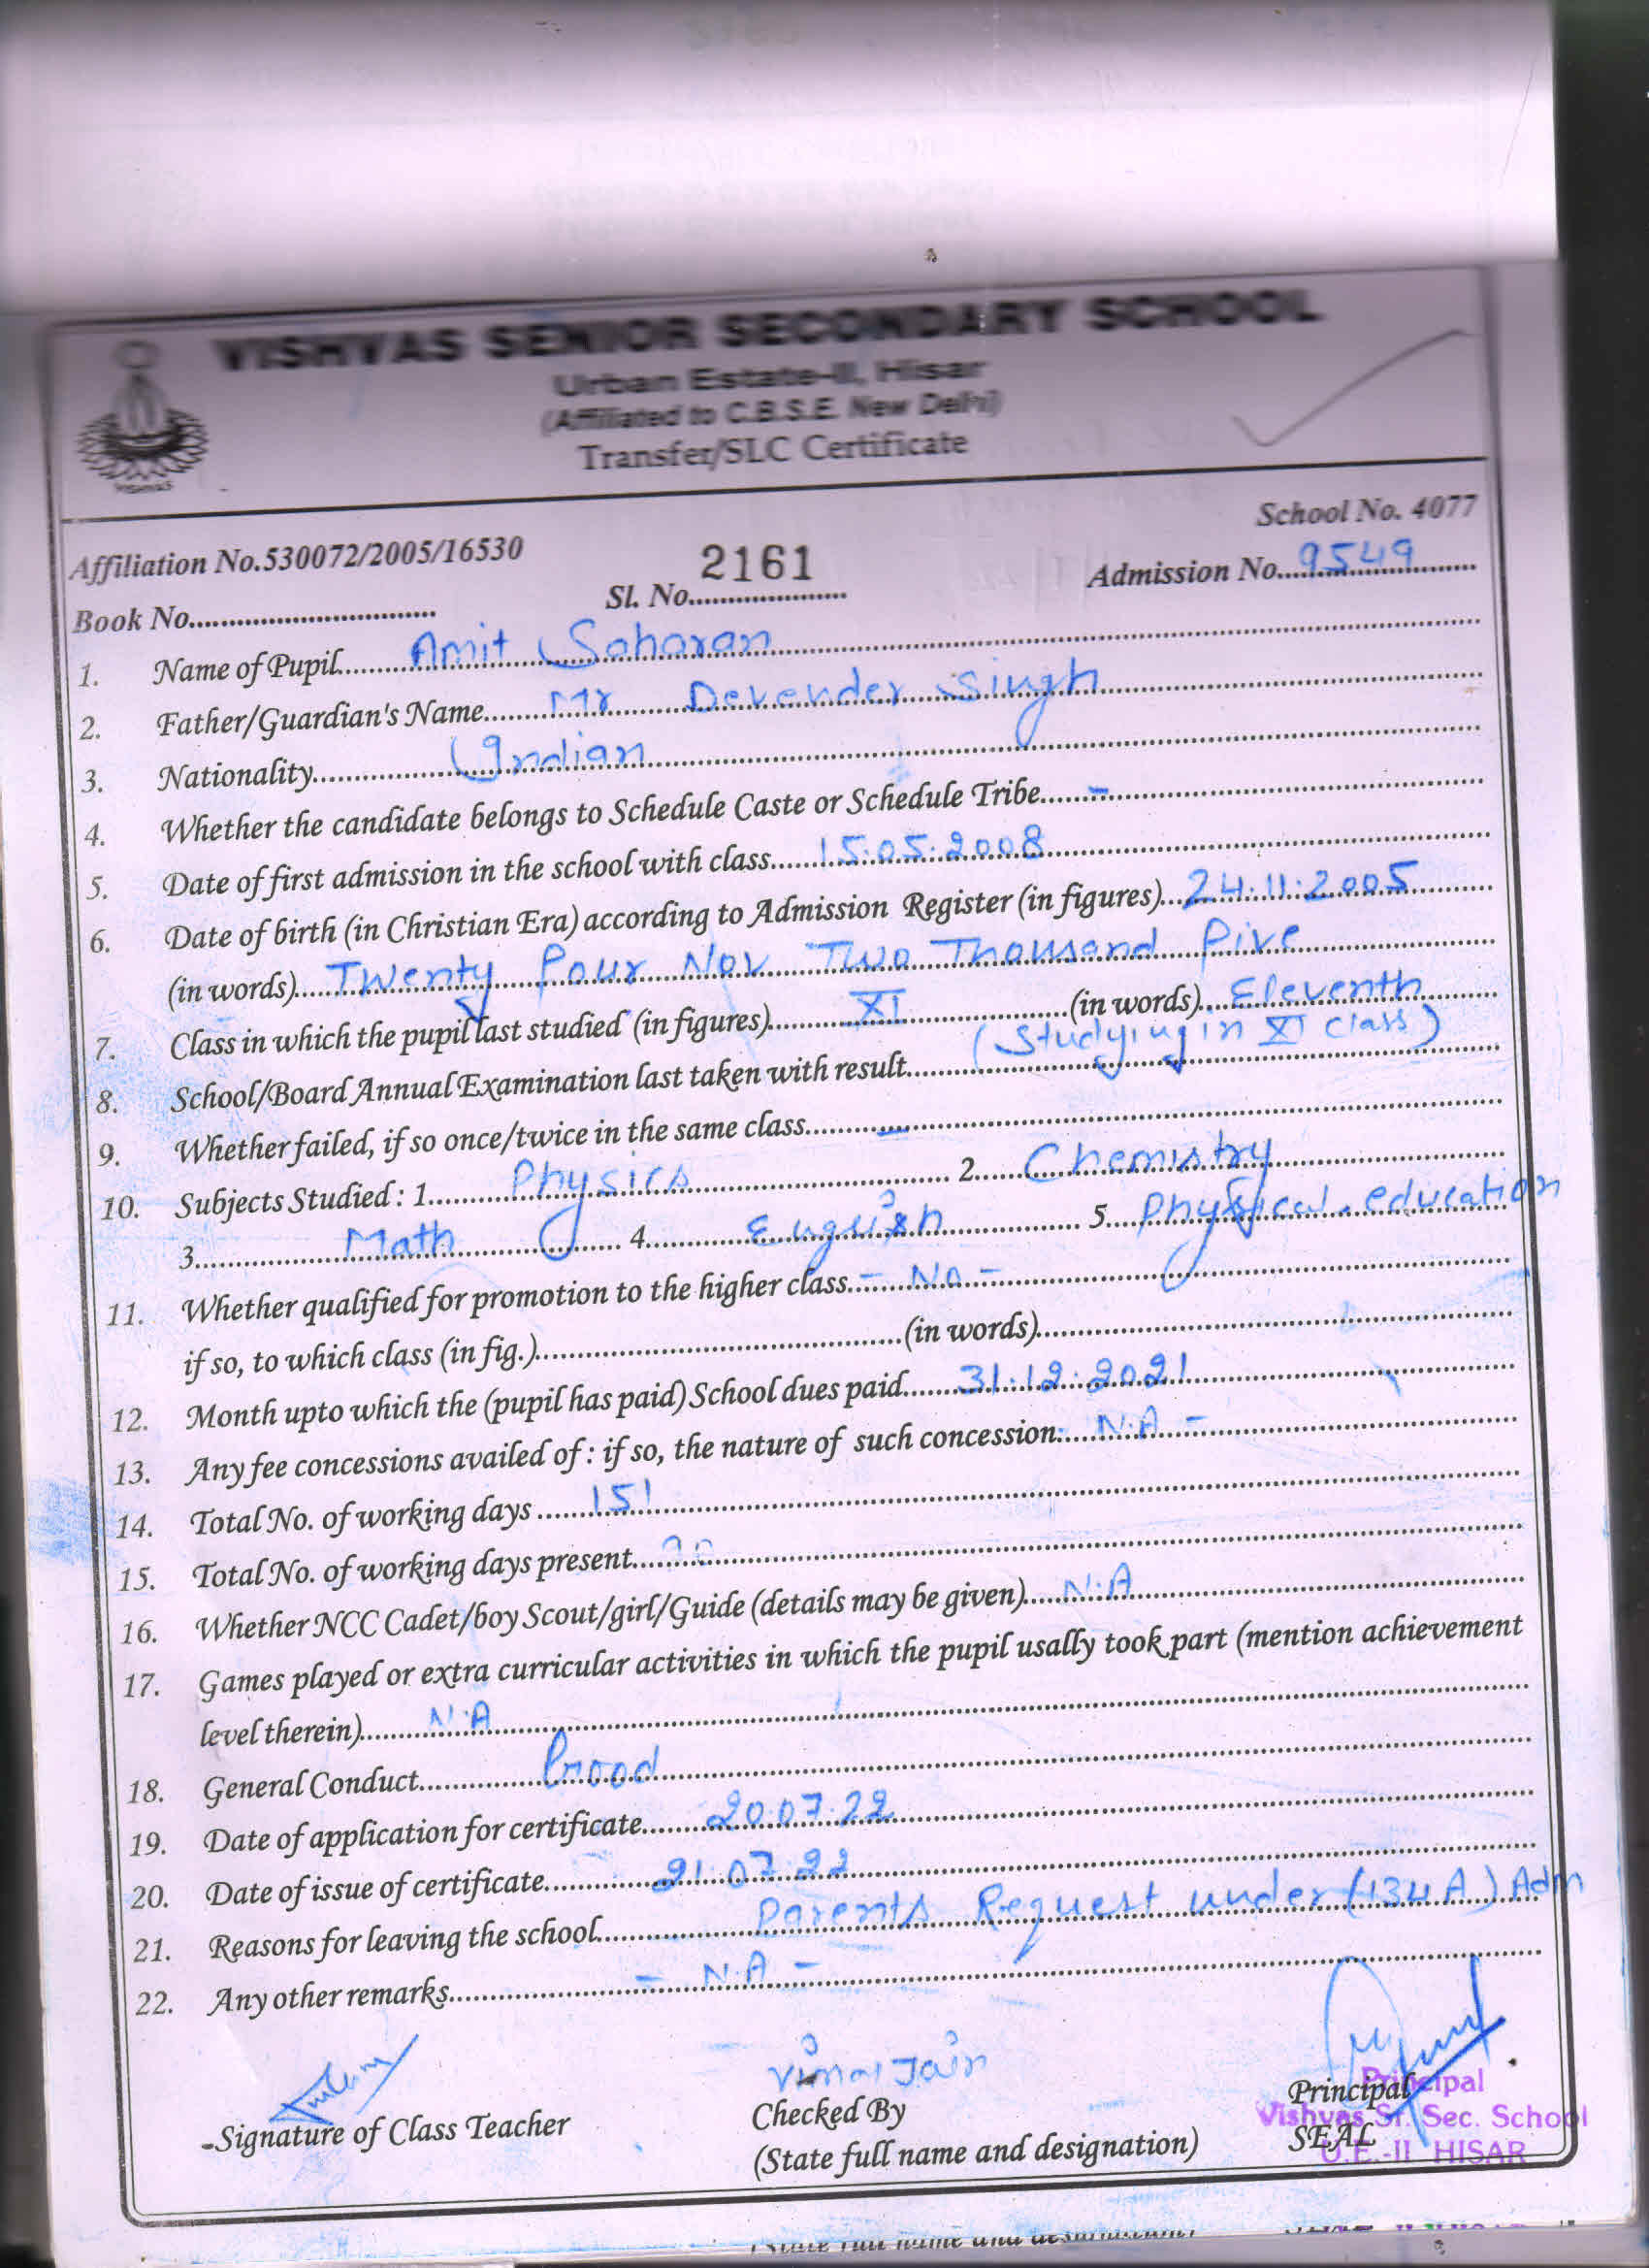 VISHVAS SENIOR SECONDARY SCHOOL
Urban Estate-II, Hisar
(Affiliated to C.B.S.E. New Delhi)
Transfer/SLC Certificate
VISHVAS
School No. 4077
Affiliation No.530072/2005/16530
Book No............ Sl. No. 2161 Admission No. 9549
1. Name of Pupil Amit Saharan
2. Father/Guardian's Name Mr Devender Singh
3. Nationality Indian
4. Whether the candidate belongs to Schedule Caste or Schedule Tribe -
5. Date of first admission in the school with class 15.05.2008
6. Date of birth (in Christian Era) according to Admission Register (in figures) 24.11.2005
(in words) Twenty Four Nov Two Thousand Five
7. Class in which the pupil last studied (in figures) XI (in words) Eleventh
8. School/Board Annual Examination last taken with result (Studying in XI class)
9. Whether failed, if so once/twice in the same class -
10. Subjects Studied : 1. Physics 2. Chemistry
3. Math 4. English 5. Physical education
11. Whether qualified for promotion to the higher class - No -
if so, to which class (in fig.) (in words)
12. Month upto which the (pupil has paid) School dues paid 31.12.2021
13. Any fee concessions availed of : if so, the nature of such concession: N.A -
14. Total No. of working days 151
15. Total No. of working days present
16. Whether NCC Cadet/boy Scout/girl/Guide (details may be given) N.A
17. Games played or extra curricular activities in which the pupil usally took part (mention achievement
level therein) N.A
18. General Conduct Good
19. Date of application for certificate 20.07.22
20. Date of issue of certificate 21.07.22
21. Reasons for leaving the school Parents Request under (134 A) Adm
22. Any other remarks - N.A -
Vimal Jain
Signature of Class Teacher Checked By Principal
(State full name and designation) SEAL
Principal
Vishvas Sr. Sec. School
U.E.-II HISAR
(State full name and designation)